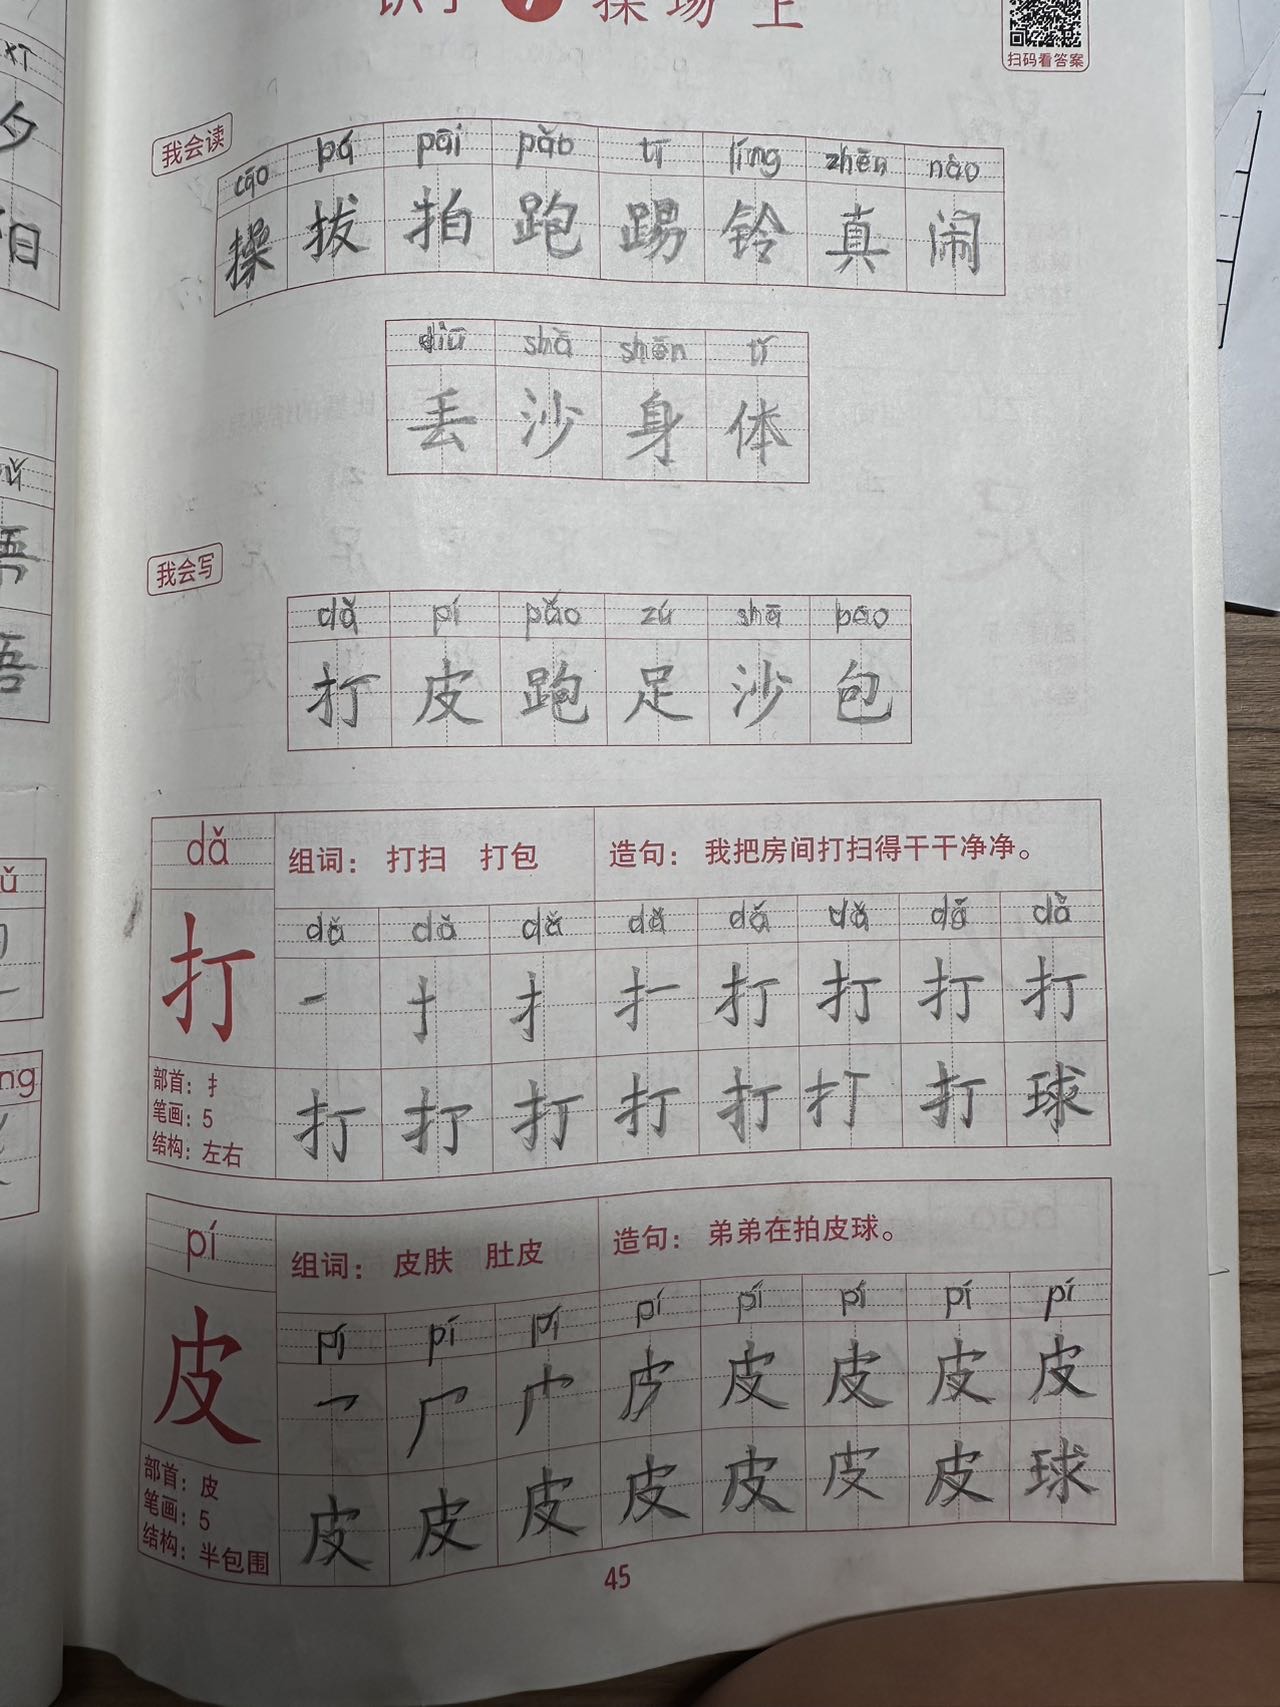 识字 7 操场上
扫码看答案
我会读
cāo bá pāi pǎo tī líng zhēn nào
操 拔 拍 跑 踢 铃 真 闹
diū shā shēn tǐ
丢 沙 身 体
我会写
dǎ pí pǎo zú shā bāo
打 皮 跑 足 沙 包
dǎ 组词：打扫 打包 造句：我把房间打扫得干干净净。
dǎ dǎ dǎ dǎ dǎ dǎ dǎ dǎ
打 一 扌 扌 扌一 打 打 打 打
部首：扌
笔画：5
结构：左右
打 打 打 打 打 打 打 球
pí 组词：皮肤 肚皮 造句：弟弟在拍皮球。
pí pí pí pí pí pí pí pí
皮 乛 厂 皮 皮 皮 皮
部首：皮
笔画：5
结构：半包围
皮 皮 皮 皮 皮 皮 皮 球
45